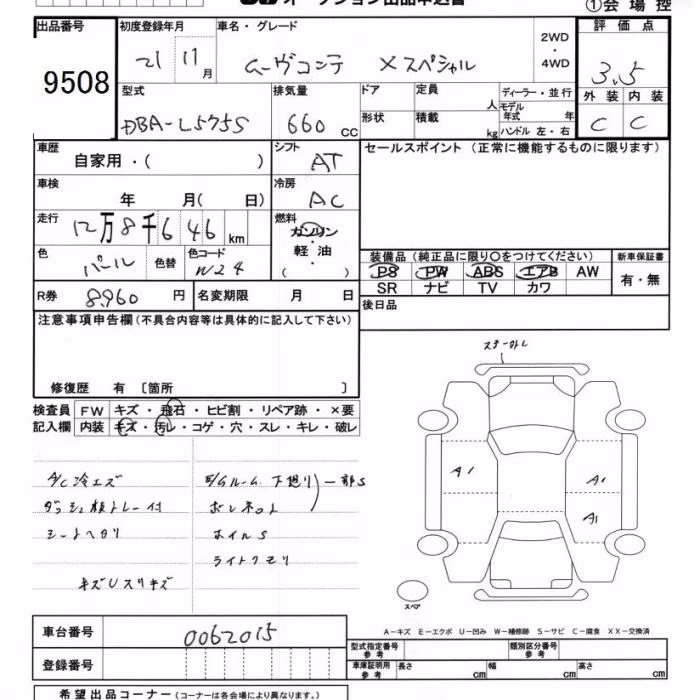 オークション出品申込書
①会場控
出品番号 初度登録年月 車名・グレード 2WD・4WD 評価点
9508 21 11月 ムーヴコンテ Xスペシャル 3.5
型式 排気量 ドア 定員 人 ディーラー・並行 外装 内装
DBA-L575S 660 CC 形状 積載 kg モデル年式 年 C C
ハンドル 左・右
車歴 自家用・( ) シフト AT セールスポイント(正常に機能するものに限ります)
車検 年 月( 日) 冷房 AC
走行 12万8千646km 燃料 ガソリン・軽油・( )
色 パール 色替 色コード W24
装備品(純正品に限り○をつけてください) 新車保証書
PS PW ABS エアB AW 有・無
SR ナビ TV カワ
R券 8,960円 名変期限 月 日 後日品
注意事項申告欄(不具合内容等は具体的に記入して下さい)
修復歴 有〔箇所 〕
検査員 FW キズ・飛石・ヒビ割・リペア跡・×要
記入欄 内装 キズ・汚レ・コゲ・穴・スレ・キレ・破レ
A/C冷エズ E/Gルーム、下廻り 一部S
ボンネット
シートヘタリ ホイルS
ライトクモリ
キズUスリキズ
A1 A1
A1
スペア
A-キズ E-エクボ U-凹み W-補修跡 S-サビ C-腐食 XX-交換済
車台番号 0062015
登録番号
型式指定番号 参考 類別区分番号 参考
車庫証明用 参考 長さ cm 幅 cm 高さ cm
希望出品コーナー(コーナーは各会場により異なります。)